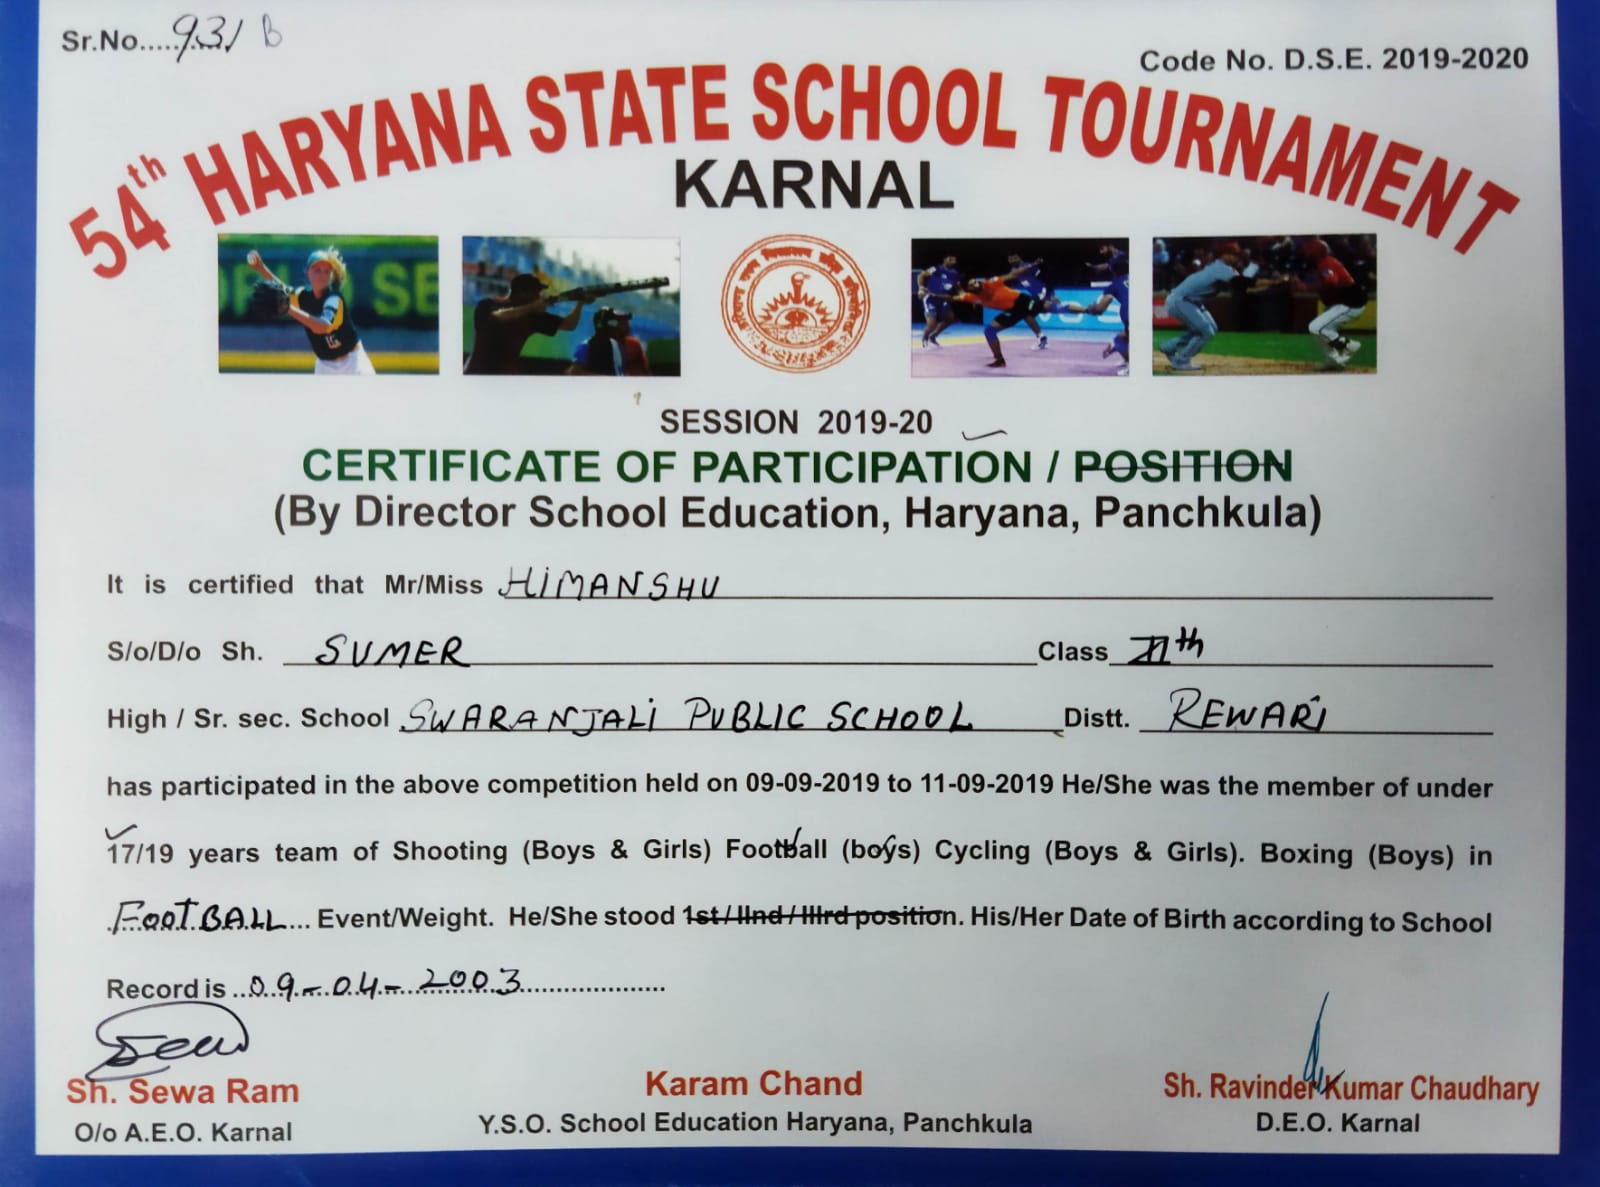 Sr.No.....931 B
Code No. D.S.E. 2019-2020
54th HARYANA STATE SCHOOL TOURNAMENT
KARNAL
SESSION 2019-20
CERTIFICATE OF PARTICIPATION / POSITION
(By Director School Education, Haryana, Panchkula)
It is certified that Mr/Miss HIMANSHU
S/o/D/o Sh. SUMER Class XIth
High / Sr. sec. School SWARANJALI PUBLIC SCHOOL Distt. REWARI
has participated in the above competition held on 09-09-2019 to 11-09-2019 He/She was the member of under
17/19 years team of Shooting (Boys & Girls) Football (boys) Cycling (Boys & Girls). Boxing (Boys) in
FOOTBALL... Event/Weight. He/She stood 1st / IInd / IIIrd position. His/Her Date of Birth according to School
Record is ..09-04-2003....................
Sh. Sewa Ram
O/o A.E.O. Karnal
Karam Chand
Y.S.O. School Education Haryana, Panchkula
Sh. Ravinder Kumar Chaudhary
D.E.O. Karnal